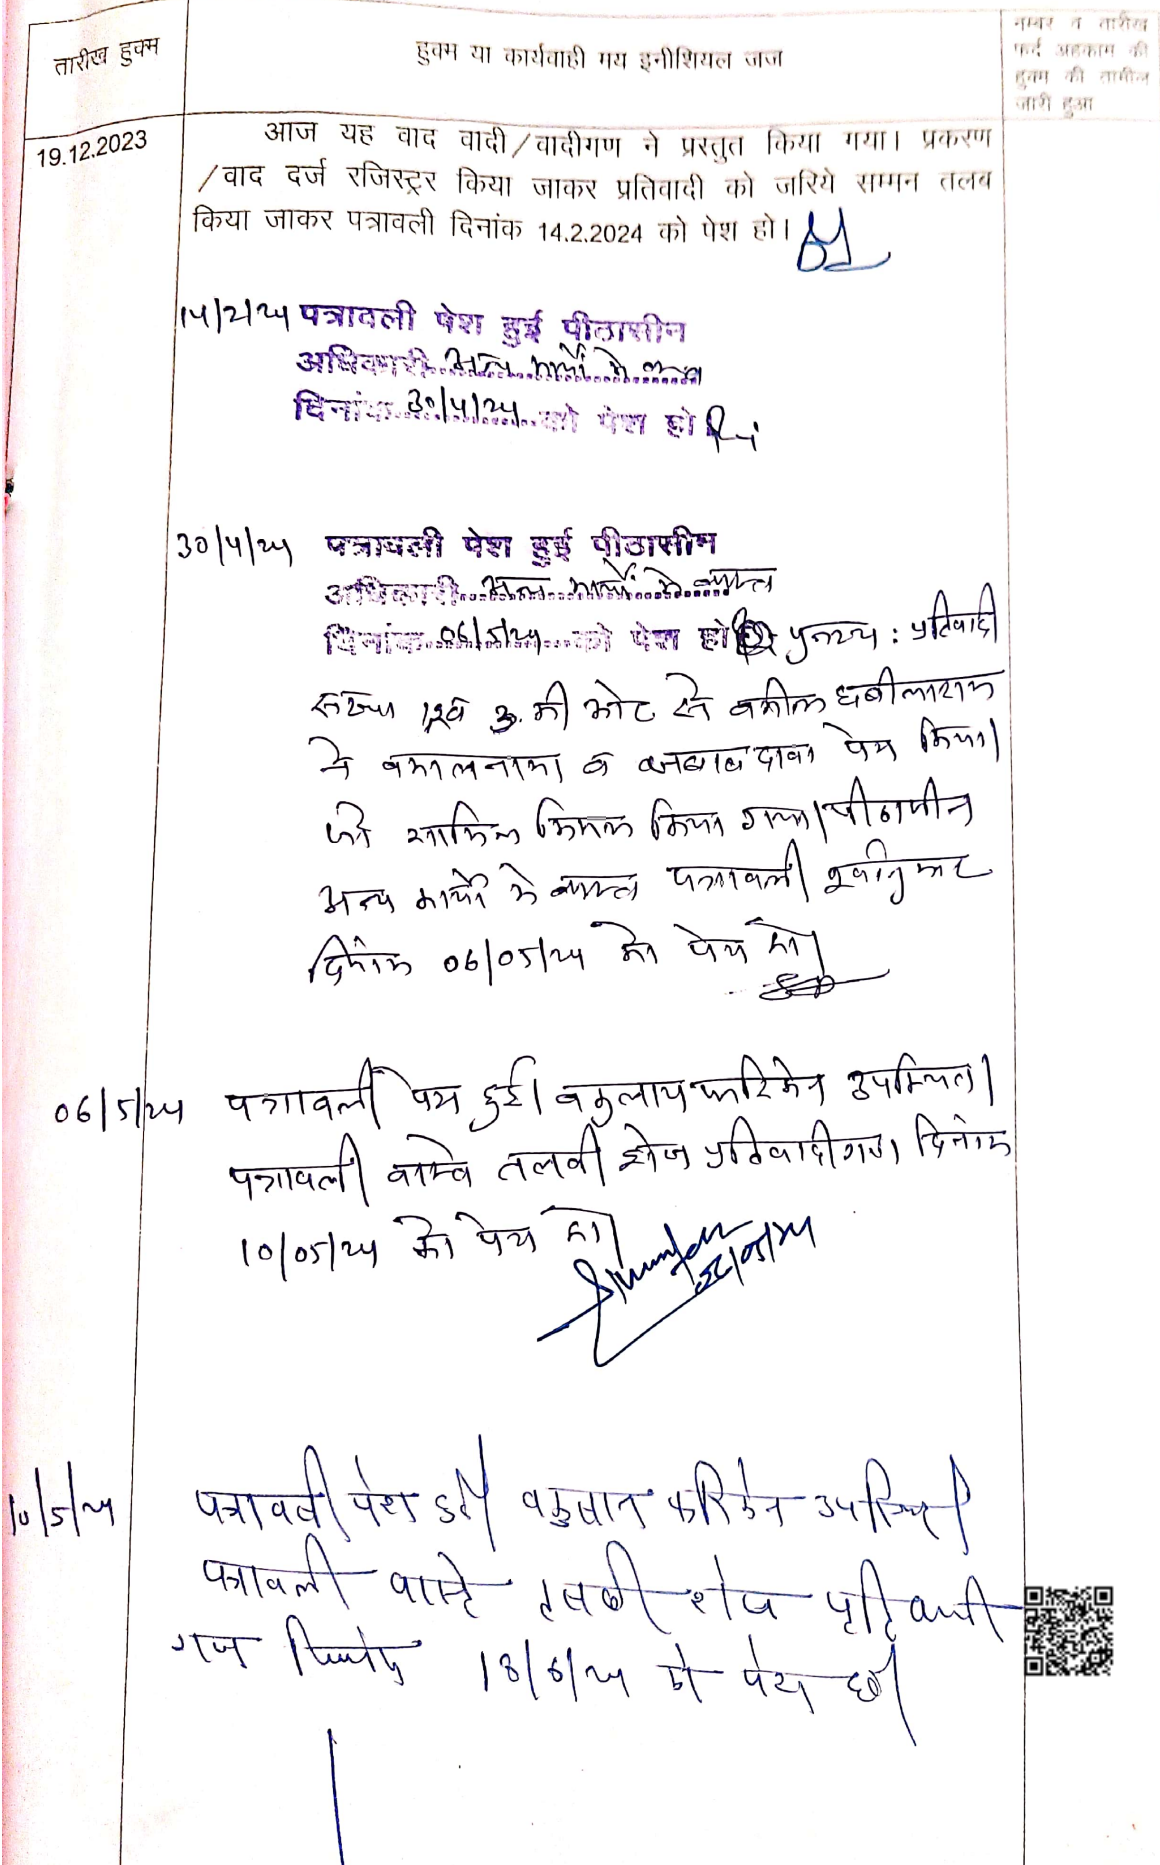 तारीख हुक्म
हुक्म या कार्यवाही मय इनीशियल जज
नम्बर व तारीख
फर्द अहकाम की
हुक्म की तामील
जारी हुआ
19.12.2023
आज यह वाद वादी/वादीगण ने प्रस्तुत किया गया। प्रकरण
/वाद दर्ज रजिस्ट्रर किया जाकर प्रतिवादी को जरिये सम्मन तलब
किया जाकर पत्रावली दिनांक 14.2.2024 को पेश हो।
14/2/24 पत्रावली पेश हुई पीठासीन
अधिकारी अन्य कार्यो मे व्यस्त
दिनांक 30/4/24 को पेश हो
30/4/24 पत्रावली पेश हुई पीठासीन
अधिकारी अन्य कार्यो मे व्यस्त
दिनांक 06/5/24 को पेश हो पुनश्च : प्रतिवादी
संख्या 1 व 3 की ओर से वकील
ने वकालतनामा व जवाब दावा पेश किया।
जो शामिल मिसल किया गया। पीठासीन
अन्य कार्यो मे व्यस्त पत्रावली
दिनांक 06/05/24 को पेश हो।
06/5/24 पत्रावली पेश हुई। वकुलाय फरिकेन उपस्थित।
पत्रावली वास्ते तलबी शेष प्रतिवादीगण दिनांक
10/05/24 को पेश हो।
06/05/24
10/5/24 पत्रावली पेश हुई। वकुलान फरिकेन उपस्थित।
पत्रावली वास्ते तलबी शेष प्रतिवादी
गण दिनांक 18/6/24 को पेश हो।